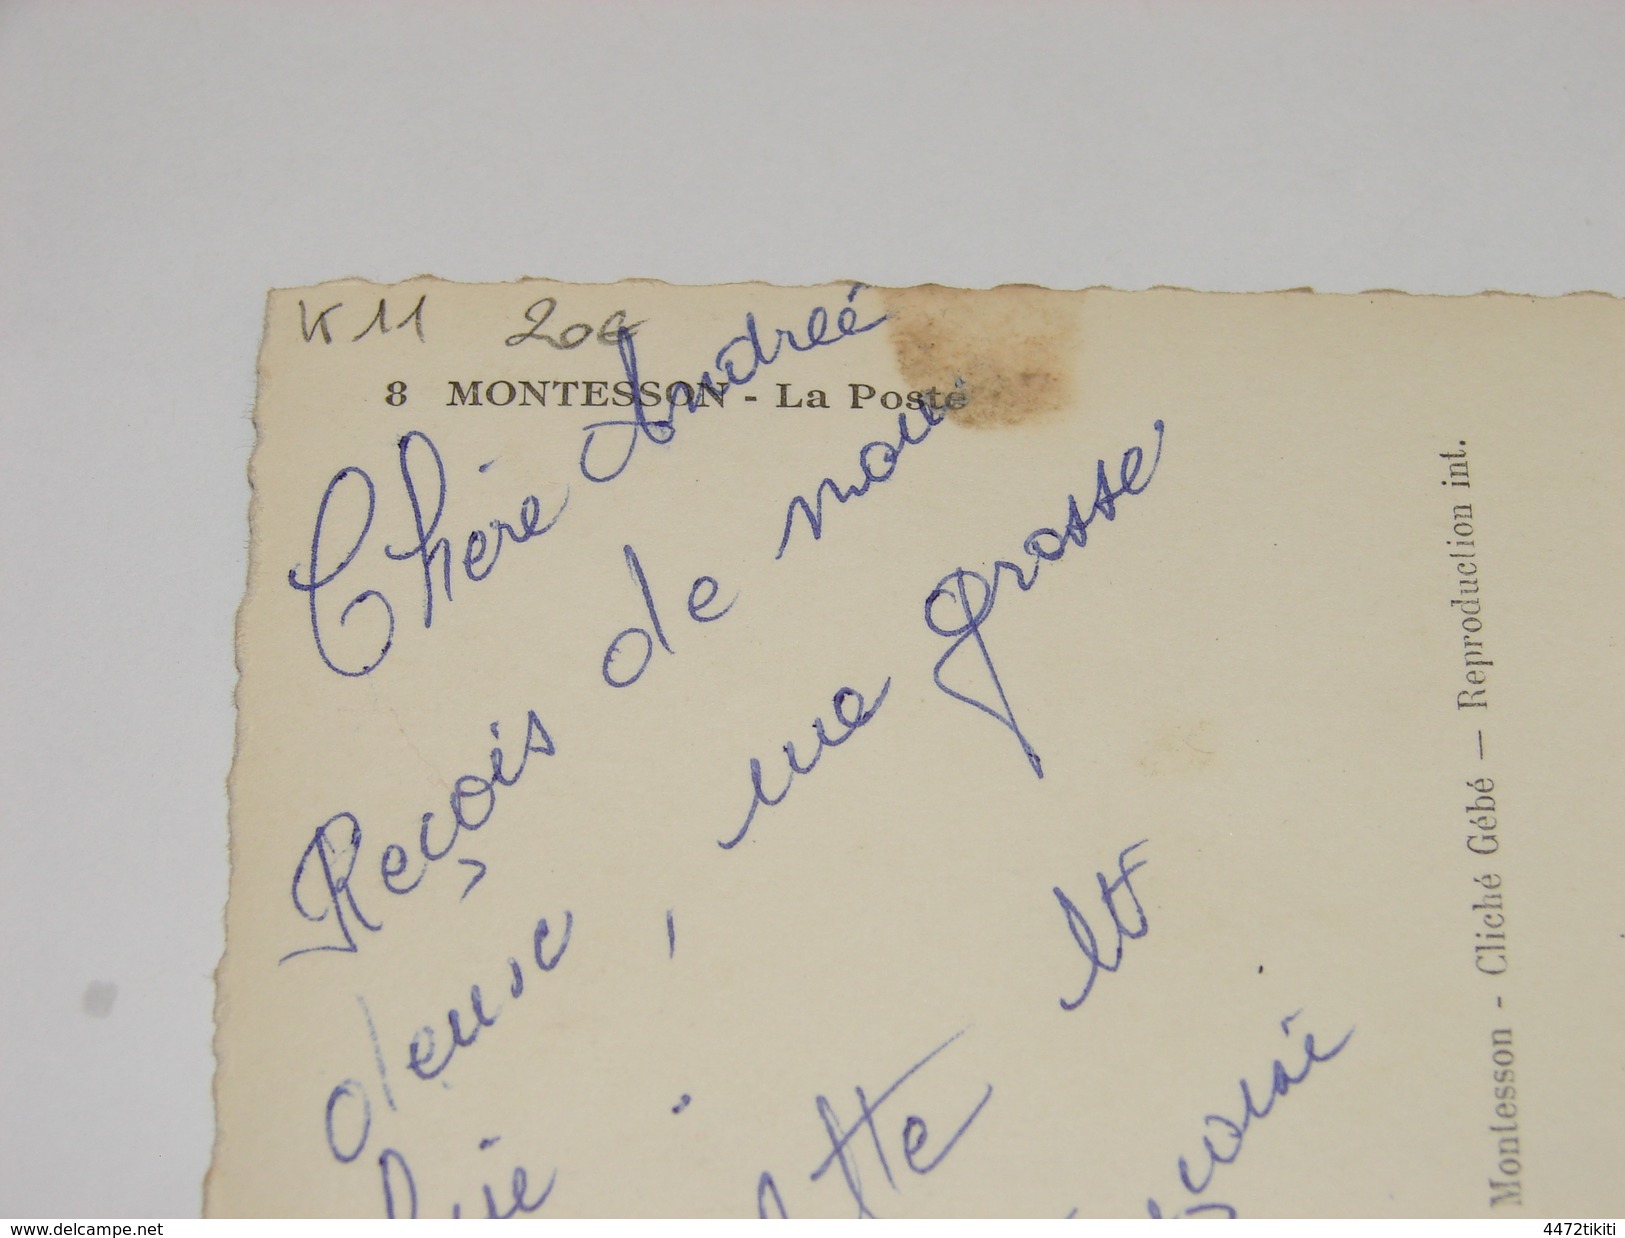 K 11 20c
8 MONTESSON - La Poste
Chère Andréé
Reçois de nous
deuse, une grosse
bise. et
tte
Montesson - Cliché Gébé — Reproduction int.
delcampe.net
4472tikiti